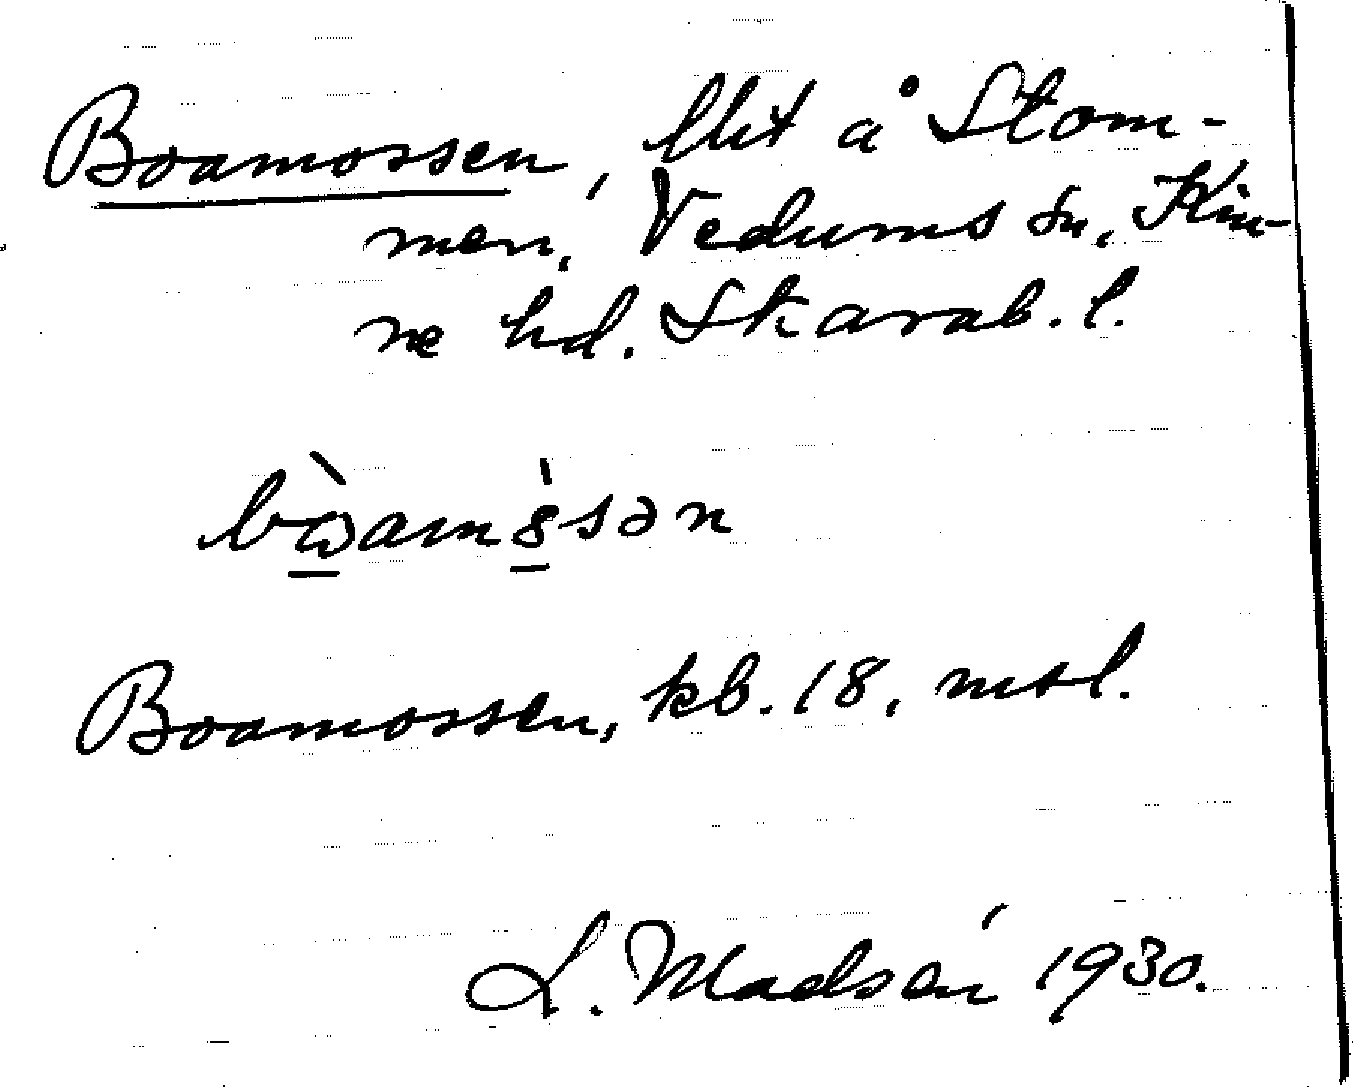 Boamossen, llit å Stom-
men, Vedums sn, Kin-
ne hd. Skarab. l.
bὼ̲am8̲̍sən
Boamossen, kb. 18, msl.
L. Madsén 1930.